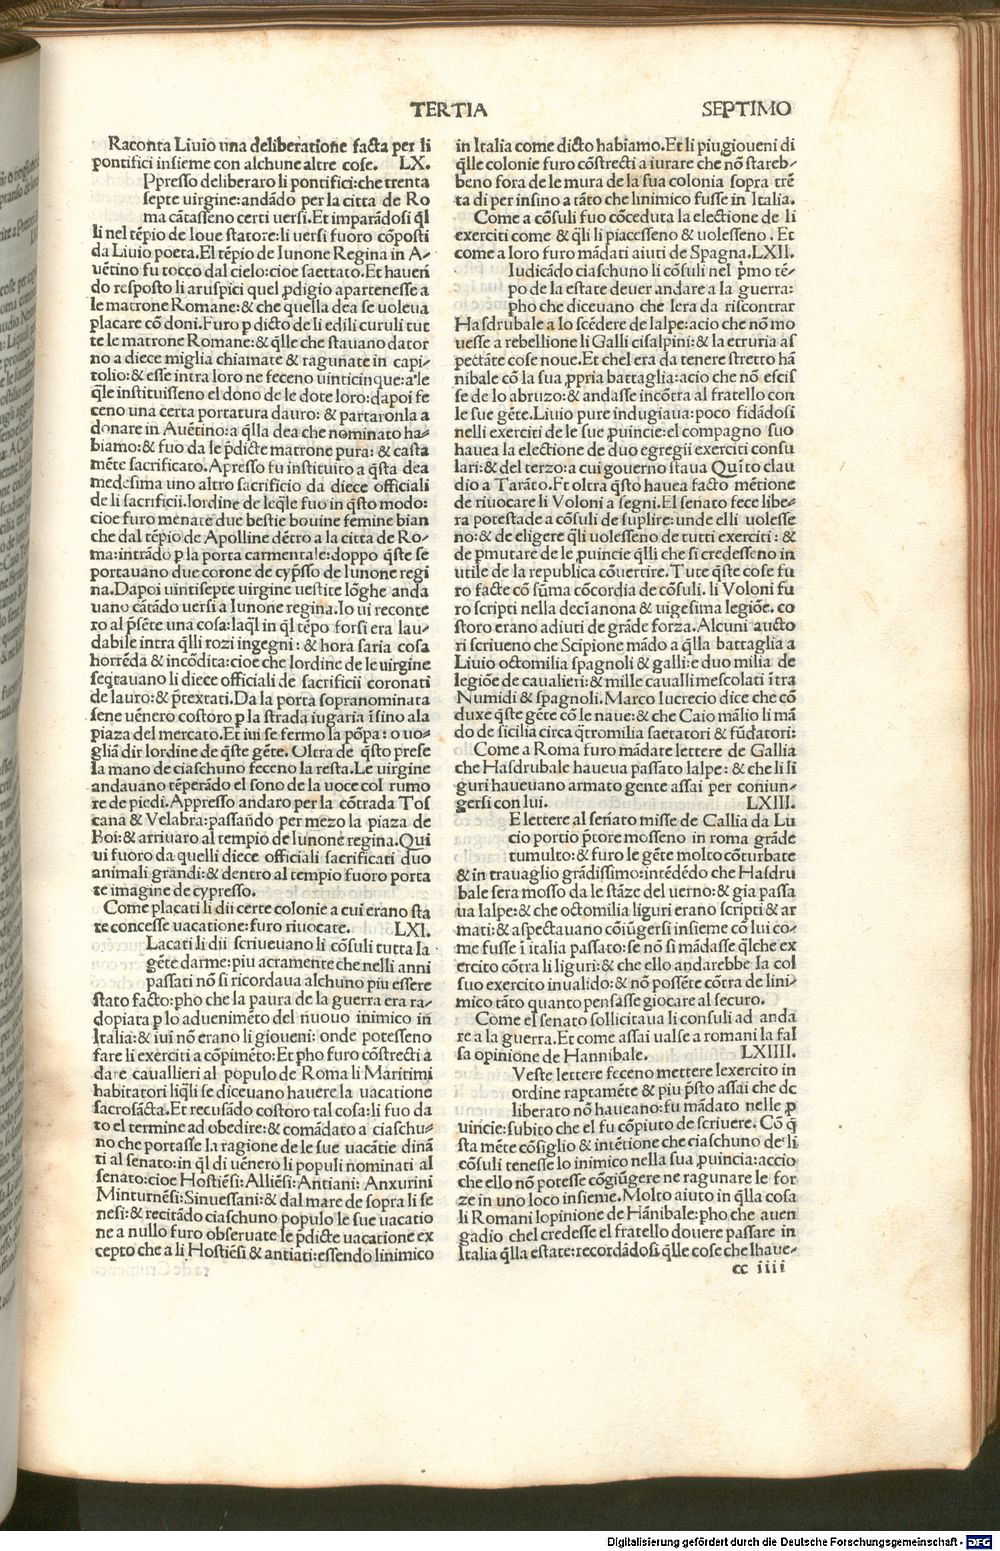 TERTIA
SEPTIMO
Raconta Liuio una deliberatione facta per li
pontifici insieme con alchune altre cose. LX.
Ppresso deliberaro li pontifici:che trenta
septe uirgine:andādo per la citta de Ro
ma cātasseno certi uersi.Et imparādosi q̄l
li nel tēpio de Ioue statore:li uersi fuoro cōposti
da Liuio poeta.El tēpio de Iunone Regina in A-
uētino fu tocco dal cielo:cioe saettato.Et haueri
do resposto li aruspici quel ꝓdigio apartenesse a
le matrone Romane:& che quella dea se uoleua
placare cō doni.Furo ꝑ dicto de li edili curuli tut
te le matrone Romane:& q̄lle che stauano dator
no a diece miglia chiamate & ragunate in capi-
tolio:& esse intra loro ne feceno uinticinque:a le
q̄le instituisseno el dono de le dote loro:dapoi fe
ceno una certa portatura dauro:& partaronla a
donare in Auētino:a q̄lla dea che nominato ha-
biamo:& fuo da le p̄dicte matrone pura:& casta
mēte sacrificato.Apresso fu instituito a q̄sta dea
medesima uno altro sacrificio da diece officiali
de li sacrificii.lordine de leq̄le fuo in q̄sto modo:
cioe furo menate due bestie bouine femine bian
che dal tēpio de Apolline dētro a la citta de Ro-
ma:intrādo ꝑ la porta carmentale:doppo q̄ste se
portauano due corone de cyp̄sso de Iunone regi
na.Dapoi uintisepte uirgine uestite lōghe anda
uano cātādo uersi a Iunone regina.Io ui reconte
ro al p̄sēte una cosa:laq̄l in q̄l tēpo forsi era lau-
dabile intra q̄lli rozi ingegni:& hora saria cosa
horrēda & incōdita:cioe che lordine de le uirgine
seq̄tauano li diece officiali de sacrificii coronati
de lauro:& p̄textati.Da la porta sopranominata
sene uēnero costoro ꝑ la strada iugaria īsino ala
piaza del mercato.Et iui se fermo la pōpa:o uo-
gliā dir lordine de q̄ste gēte. Oltra de q̄sto prese
la mano de ciaschuno feceno la resta.Le uirgine
andauano tēperādo el sono de la uoce col rumo
re de piedi.Appresso andaro per la cōtrada Tos
cana & Velabra:passando per mezo la piaza de
Boi:& arriuaro al tempio de Iunone regina.Qui
ui fuoro da quelli diece officiali sacrificati duo
animali grandi:& dentro al tempio fuoro porta
te imagine de cypresso.
Come placati li dii certe colonie a cui erano sta
te concesse uacatione:furo riuocate. LXI.
Lacati li dii scriueuano li cōsuli tutta la
gēte darme:piu acramente che nelli anni
passati nō si ricordaua alchuno piu essere
stato facto:ꝑho che la paura de la guerra era ra-
dopiata ꝑ lo aduenimēto del nuouo inimico in
Italia:& iui nō erano li gioueni: onde potesseno
fare li exerciti a cōpimēto:Et ꝑho furo cōstrecti a
dare cauallieri al populo de Roma li Maritimi
habitatori liq̄li se diceuano hauere la uacatione
sacrosācta.Et recusādo costoro tal cosa:li fuo da
to el termine ad obedire:& comādato a ciaschu-
no che portasse la ragione de le sue uacātie dinā
ti al senato:in q̄l di uēnero li populi nominati al
senato:cioe Hostiēsi:Alliēsi:Antiani: Anxurini
Minturnēsi:Sinuessani:& dal mare de sopra li se
nesi:& recitādo ciaschuno populo le sue uacatio
ne a nullo furo obseruate le p̄dicte uacatione ex
cepto che a li Hostiēsi & antiati:essendo linimico
in Italia come dicto habiamo.Et li piugioueni di
q̄lle colonie furo cōstrecti a iurare che nō stareb-
beno fora de le mura de la sua colonia sopra trē
ta di per insino a tāto che linimico fusse in Italia.
Come a cōsuli fuo cōceduta la electione de li
exerciti come & q̄li li piacesseno & uolesseno. Et
come a loro furo mādati aiuti de Spagna.LXII.
Iudicādo ciaschuno li cōsuli nel p̄mo tē-
po de la estate deuer andare a la guerra:
ꝑho che diceuano che lera da riscontrar
Hasdrubale a lo scēdere de lalpe:acio che nō mo
uesse a rebellione li Galli cisalpini:& la etruria as
pectāte cose noue.Et chel era da tenere stretto hā
nibale cō la sua ꝓpria battaglia:acio che nō escis
se de lo abruzo:& andasse incōtra al fratello con
le sue gēte.Liuio pure indugiaua:poco fidādosi
nelli exerciti de le sue ꝓuincie:el compagno suo
hauea la electione de duo egregii exerciti consu
lari:& del terzo:a cui gouerno staua Quīto clau
dio a Tarāto.Et oltra q̄sto hauea facto mētione
de riuocare li Voloni a segni.El senato fece libe-
ra potestade a cōsuli de suplire:unde elli uolesse
no:& de eligere q̄li uolesseno de tutti exerciti:&
de ꝑmutare de le ꝓuincie q̄lli che si credesseno in
utile de la republica cōuertire.Tute q̄ste cose fu
ro facte cō sūma cōcordia de cōsuli. li Voloni fu
ro scripti nella decianona & uigesima legiōe. co
storo erano adiuti de grāde forza.Alcuni aucto
ri scriueno che Scipione mādo a q̄lla battaglia a
Liuio octomilia spagnoli & galli:e duo milia de
legiōe de caualieri:& mille caualli mescolati ītra
Numidi & spagnoli.Marco lucrecio dice che cō
duxe q̄ste gēte cō le naue:& che Caio mālio li mā
do de sicilia circa q̄tromilia saetatori & fūdatori:
Come a Roma furo mādate lettere de Gallia
che Hasdrubale haueua passato lalpe:& che li li
guri haueuano armato gente assai per coniun-
gersi con lui. LXIII.
E lettere al senato misse de Callia da Lu
cio portio p̄tore mosseno in roma grāde
tumulto:& furo le gēte molto cōturbate
& in trauaglio grādissimo:intēdēdo che Hasdru
bale sera mosso da le stāze del uerno:& gia passa
ua lalpe:& che octomilia liguri erano scripti & ar
mati:& aspectauano cōiūgersi insieme cō lui co-
me fusse ī italia passato:se nō si mādasse q̄lche ex
ercito cōtra li liguri:& che ello andarebbe la col
suo exercito inualido:& nō possēte cōtra de lini-
mico tāto quanto pensasse giocare al securo.
Come el senato sollicitaua li consuli ad anda
re a la guerra.Et come assai ualse a romani la fal
sa opinione de Hannibale. LXIIII.
Veste lettere feceno mettere lexercito in
ordine raptamēte & piu p̄sto assai che de
liberato nō haueano:fu mādato nelle ꝓ
uincie:subito che el fu cōpiuto de scriuere. Cō q̄
sta mēte cōsiglio & intētione che ciaschuno de li
cōsuli tenesse lo inimico nella sua ꝓuincia:accio
che ello nō potesse cōgiūgere ne ragunare le for
ze in uno loco insieme.Molto aiuto in q̄lla cosa
li Romani lopinione de Hānibale:ꝑho che auen
gadio chel credesse el fratello douere passare in
Italia q̄lla estate:recordādosi q̄lle cose che lhaue-
cc iiii
Digitalisierung gefördert durch die Deutsche Forschungsgemeinschaft - DFG